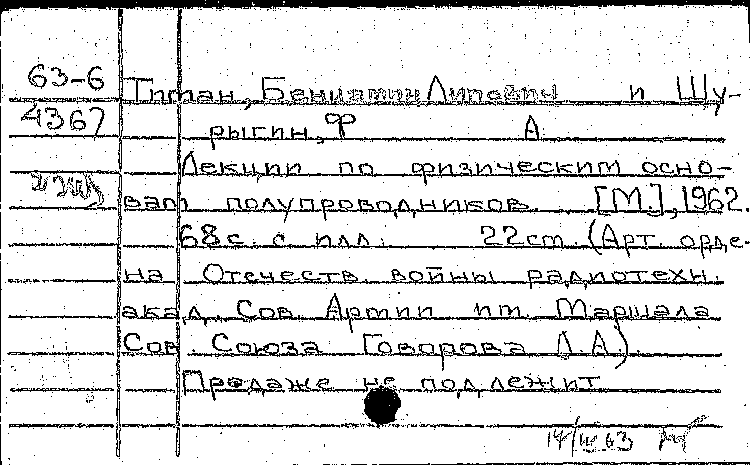 63-6
Гитман, Бениамин Липович и Шу-
4367
рыгин, Ф А.
Лекции по физическим осно-
вам полупроводников. [М.], 1962.
68 с. с илл. 22 cm. (Арт. орде-
на Отечеств. войны радиотехн.
акад. Сов. Армии им. Маршала
Сов. Союза Говорова Л.А.)
Продаже не подлежит
14/III 63